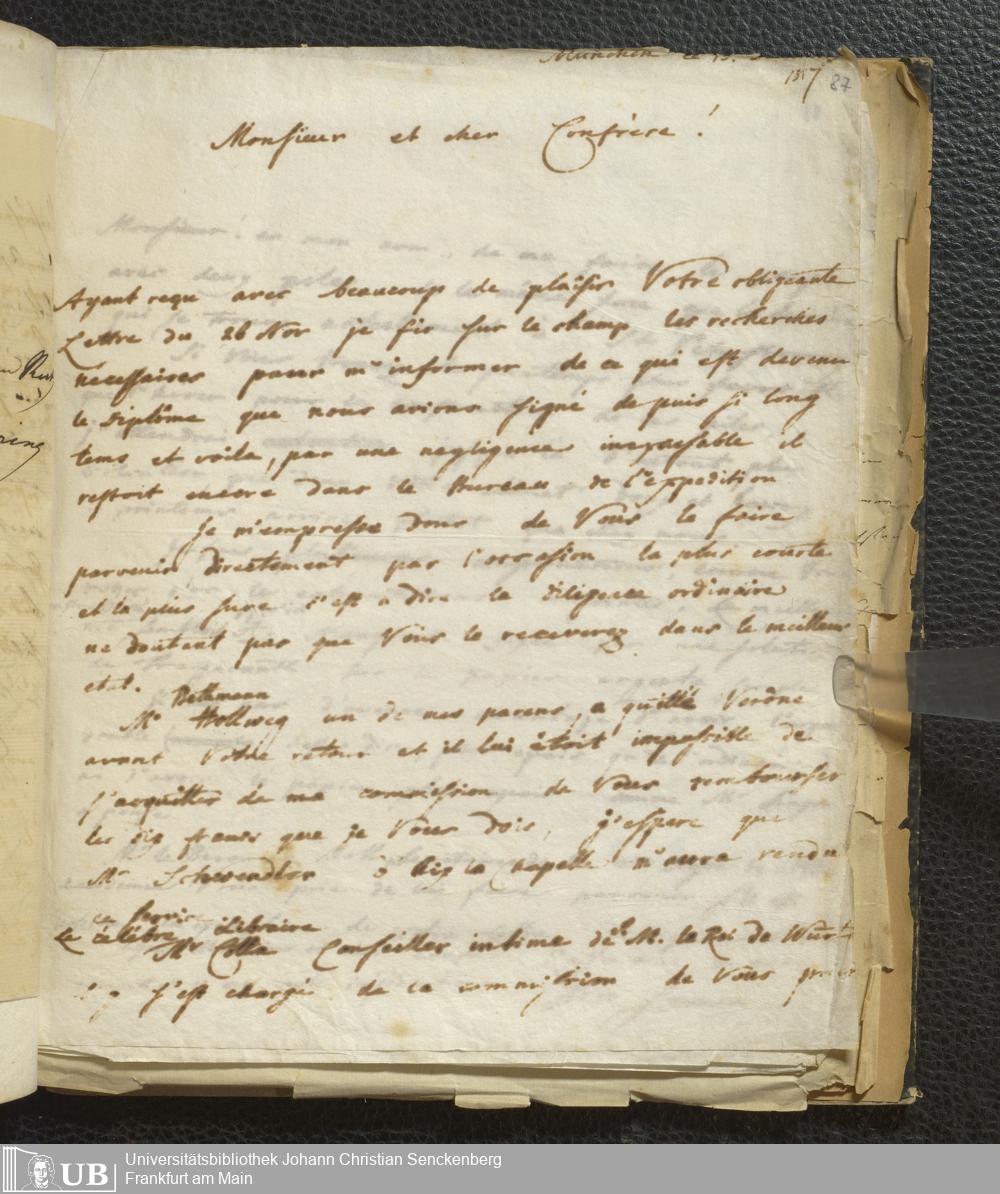 München ce 15.
1817
87
Monsieur et cher Confrère!
Ayant reçu avec beaucoup de plaisir Votre obligeante
Lettre du 26 Nov je fis sur le champ les recherches
nécessaires pour m'informer de ce qui est devenu
le Diplôme que nous avions signé depuis si long
tems et voila, par une negligence inexcusable il
restoit encore dans le Bureau de l'expedition
Je m'empresse donc de Vous le faire
parvenir directement par l'occasion la plus courte
et la plus sure c'est a dire la diligence ordinaire
ne doutent pas que Vous le receverez dans le meilleur
etat.
Bethmann
Mr Hollweg un de mes parens, a quitté Verône
avant Votre retour et il lui êtoit impossible de
s'acquitter de ma commission de Vous rembourser
les dix francs que je Vous dois, j'espere que
Mr Schwendler à Aix la Chapelle m'aura rendu
ce service
Le célébre Libraire
Mr Cotta Conseiller intime de S. M. le Roi de Wurt
s'est chargé de la commission de Vous prier
Universitätsbibliothek Johann Christian Senckenberg
UB
Frankfurt am Main